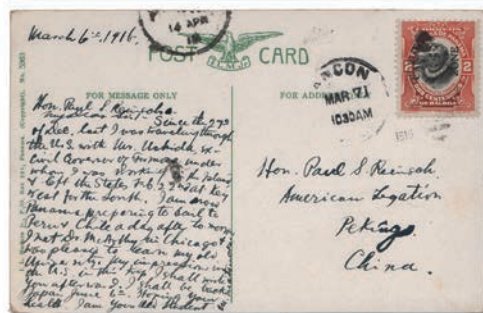 March 6th, 1916.
14 APR
POST CARD
FOR MESSAGE ONLY
FOR ADD
Hon. Paul S. Reinsch
my dear Sir, Since the 27th
of Dec. last I was traveling through
the U.S. with Mr. Uchida, ex-
Civil Governor of Formosa under
whom I was working in the Island
& left the States Feb. 22nd at Key
West for the South. I am now
Panama preparing to sail to
Peru & Chile a day after to-morrow
I met Dr. McCarthy in Chicago &
was pleased to learn my old
University. My impression
on U.S. in the trip I shall write
you afterward. I shall be back
Japan June 6th. Hoping your
health. I am your old student
ANCON
MAR 7
1030AM
1916
2
2
Hon. Paul S. Reinsch
American Legation
Peking
China.